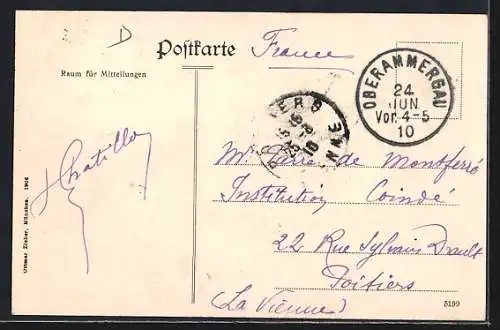 D
Postkarte
France
Raum für Mitteilungen
OBERAMMERGAU
24
JUN
Vor. 4-5
10
Mr Pierre de Montferré
Institution Coindé
22 Rue Sylvain Drault
Poitiers
(La Vienne)
Ottmar Zieher, München. 1906
5199